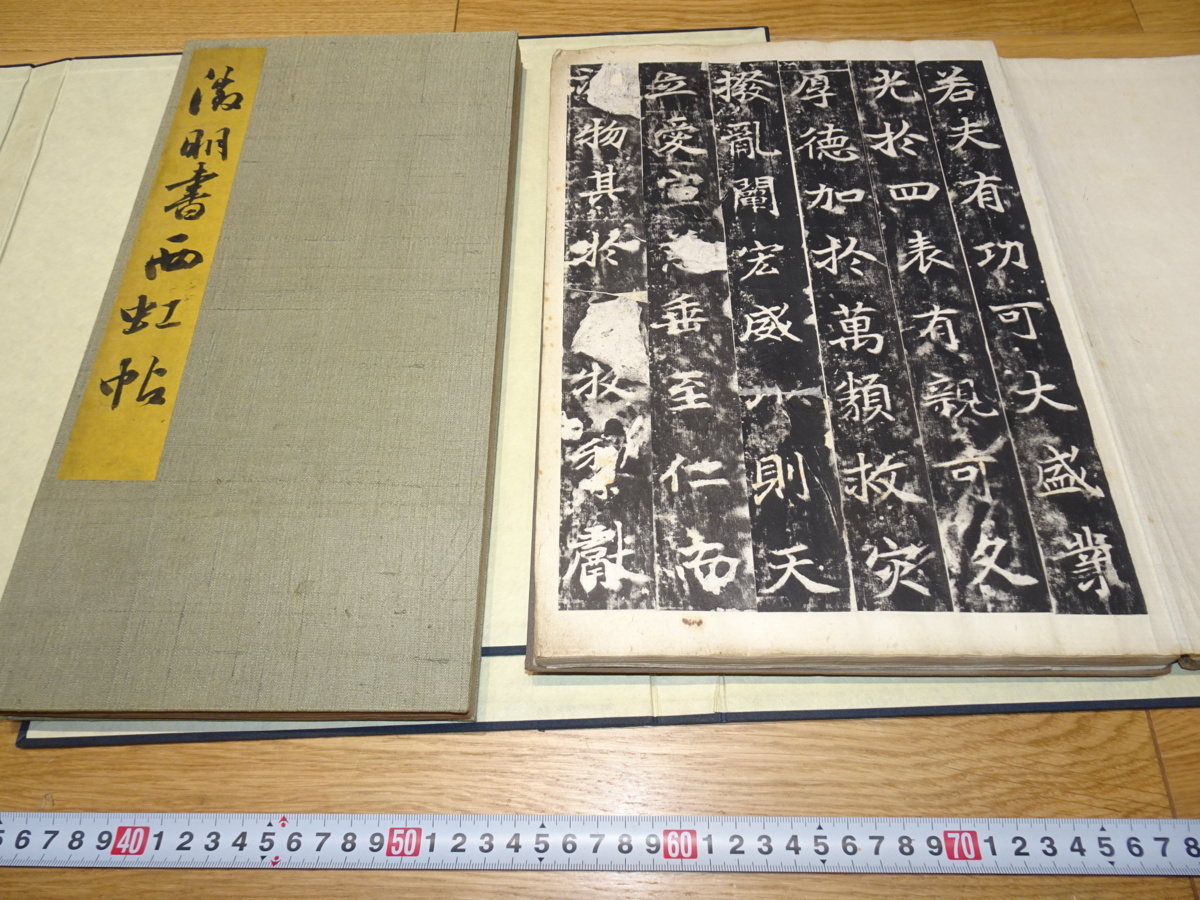 明書西虹帖
若夫有功可大盛業
光於四表有親可久
厚德加於萬類救灾
撥亂闡宏威 則天
立愛宣 垂至仁而
物其於 牧 獻
5 6 7 8 9 40 1 2 3 4 5 6 7 8 9 50 1 2 3 4 5 6 7 8 9 60 1 2 3 4 5 6 7 8 9 70 1 2 3 4 5 6 7 8